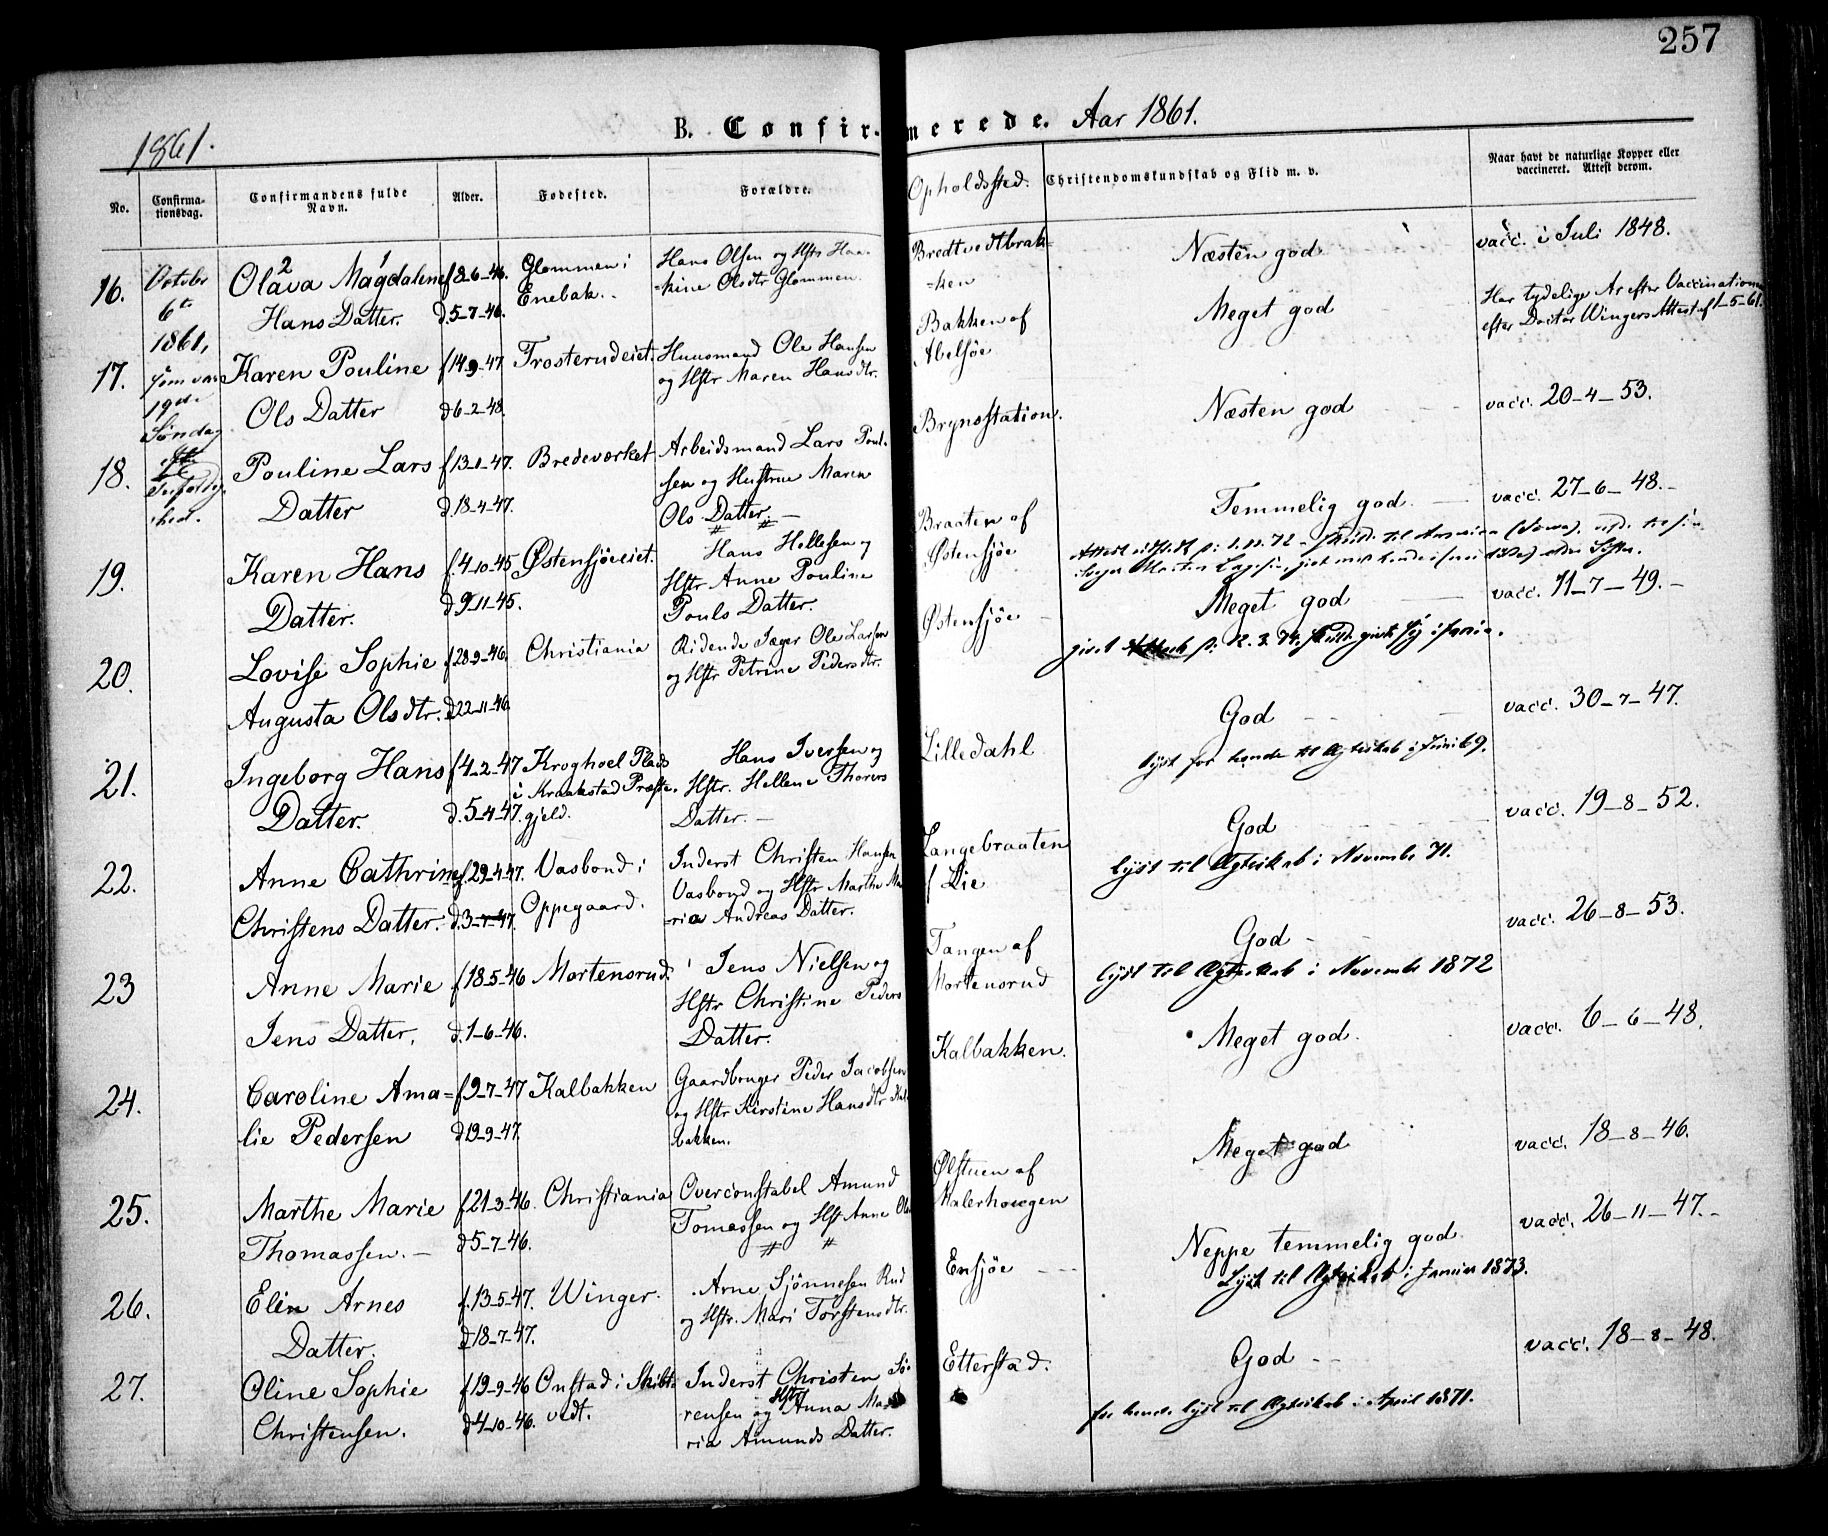 257
1861.
B. Confirmerede. Aar 1861.
No.
Confirma-
tionsdag.
Confirmandens fulde
Navn.
Alder.
Fødested.
Forældre.
Opholdssted.
Christendomskundskab og Flid m. v.
Naar havt de naturlige Kopper eller
vaccineret. Attest derom.
October
6te
1861,
som var
19de
Søndag
16.
2 1
Olava Magdalene
Hans Datter.
f 8-6-46.
d. 5-7-46.
Glommen i
Enebak.
Hans Olsen og Hstr Haa-
kine Olsdtr Glommen.
Bredtvedtbrak-
ken
Næsten god
vacc. i Juli 1848.
17.
Karen Pouline
Ols Datter
f 14-9-47
d 6-2-48.
Trosterudeiet.
Huusmand Ole Hansen
og Hstr Maren Hansdtr.
Bakken af
Abelsøe
Meget god
Har tydelige Ar efter Vaccinationen
efter Doctor Wingers Attest af 1-5-61.
18.
Pouline Lars
Datter
f 13-1-47.
d. 18-4-47.
Bredeværket
Arbeidsmand Lars Poul-
sen og Hustrue Maren
Ols Datter. -
Brynsstation.
Næsten god
vacc. 20-4-53.
19.
Karen Hans
Datter.
f. 4-10-45
d 9-11-45.
Østensjøeiet.
Hans Hellesen og
Hstr Anne Pouline
Pouls Datter.
Braaten af
Østensjøe
Temmelig god.
vacc. 27-6-48.-
20.
Lovise Sophie
Augusta Olsdtr.
f 28-9-46.
d 22-11-46
Christiania
Ridende Jæger Ole Larsen
og Hstr Petrine Pedersdtr.
Østensjøe
Meget god
vacc. 11-7-49.-
21.
Ingeborg Hans
Datter.
f 4-2-47
d. 5-4-47.
Kroghoel Plads
i Kraakstad Præste-
gjeld.
Hans Iversen og
Hstr. Hellene Thorers
Datter. -
Lilledahl
God
lyst for hende til Ægteskab i Juni 69.
vacc. 30-7-47.
22.
Anne Cathrine
Christens Datter.
f. 29-4-47.
d. 3-7-47.
Vasbond i
Oppegaard.
Inderst Christen Hansen
Vasbond og Hstr Marthe Ma
ria Andreas Datter.
Langebraaten
f Lie
God
lyst til Ægteskab i November 71.
vacc. 19-8-52.
23
Anne Marie
Jens Datter.
f 18-5-46
d. 1-6-46.
Mortensrud.
Jens Nielsen og
Hstr Christine Peders
Datter.
Tangen af
Mortensrud
God
lyst til Ægteskab i November 1872
vacc. 26-8-53.
24.
Caroline Ama-
lie Pedersen
f 9-7-47
d 19-9-47.
Kalbakken
Gaardbruger Peder Jacobsen
og Hstr Kirstine Hansdtr Kal
bakken.
Kalbakken.
Meget god.
vacc. 6-6-48.
25.
Marthe Marie
Thomassen. -
f 21-3-46.
d 5-7-46.
Christiania
Overconstabel Amund
Tomassen og Hstr Anne Ols
Ølstuen af
Malerhougen
Meget god
vacc. 18-8-46.
26.
Elin Arnes
Datter.
f. 13-5-47.
d 18-7-47.
Winger.
Arne Sjønnesen Rud
og Hstr. Mari Torstensdtr.
Ensjøe
Neppe temmelig god.
Lyst til Ægteskab i Januar 1873.
vacc. 26-11-47.-
27.
Oline Sophie
Christensen.
f 19-9-46
d 4-10-46.
Onstad i Skibt-
vedt.
Inderst Christen Sø-
rensen og Hstr Anna Ma
ria Amunds Datter.
Etterstad.
God
for hende lyst til Ægteskab i April 1871.
vacc. 18-8-48.